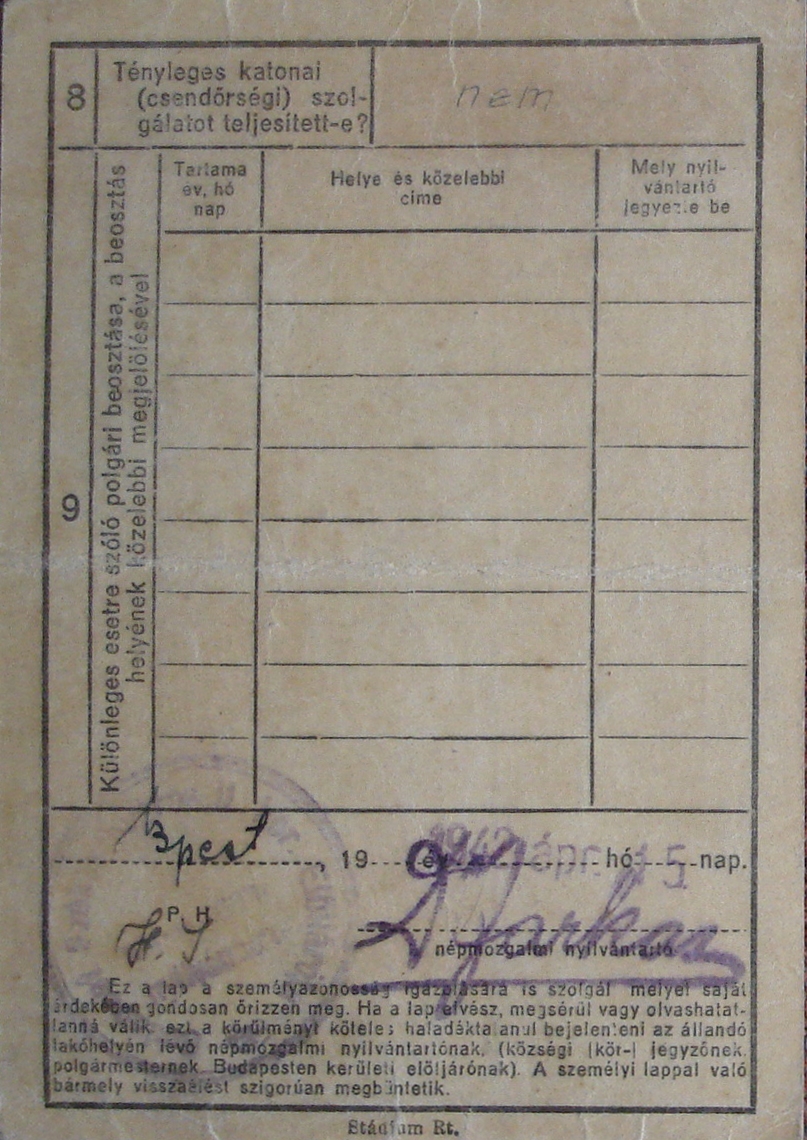 8
Tényleges katonai
(csendőrségi) szol-
gálatot teljesített-e?
nem
9
Különleges esetre szóló polgári beosztása, a beosztás
helyének közelebbi megjelölésével
Tartama
év, hó
nap
Helye és közelebbi
címe
Mely nyil-
vántartó
jegyezte be
Bpest, 19 év hó nap.
1942 ápr. 15
P. H.
népmozgalmi nyilvántartó
Ez a lap a személyazonosság igazolására is szolgál melyet saját
érdekében gondosan őrizzen meg. Ha a lap elvész, megsérül vagy olvashatat-
lanná válik ezt a körülményt köteles haladéktalanul bejelenteni az állandó
lakóhelyén lévő népmozgalmi nyilvántartónak, (községi (kör-) jegyzőnek,
polgármesternek Budapesten kerületi elöljárónak). A személyi lappal való
bármely visszaélést szigorúan megbüntetik.
Stádium Rt.